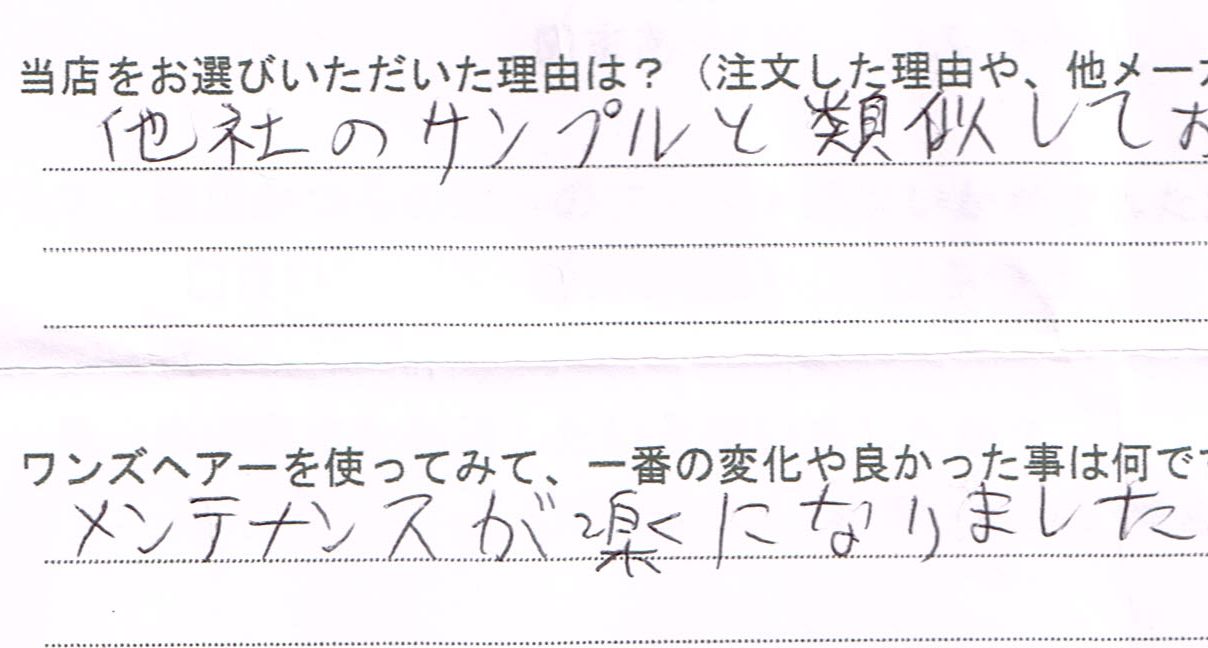 当店をお選びいただいた理由は？（注文した理由や、他メー
他社のサンプルと類似してお
ワンズヘアーを使ってみて、一番の変化や良かった事は何で
メンテナンスが楽になりました